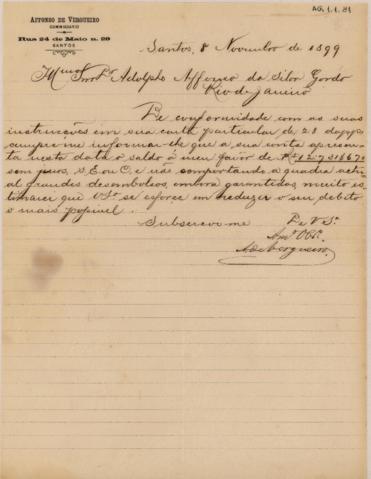 AG. 1.1.81
AFFONSO DE VERGUEIRO
COMMISSARIO
Rua 24 de Maio n. 29
SANTOS
Santos, 8 Novembro de 1899
Illmo Snr Dr Adolpho Affonso da Silva Gordo
Rio de Janeiro
De conformidade com as suas
instrucções em sua carta particular de 28
cumpre-me informar-lhe que a sua conta apresen
ta nesta data o saldo á meu favor de
sem juros, S.E. ou O. e não comportando a quadra actu
al grandes desembolsos, embora garantidos muito es-
timarei que VSª se esforce em reduzir o seu debito
o mais possivel.
Subscrevo-me De V Sª
Amº Obrº
A de Vergueiro